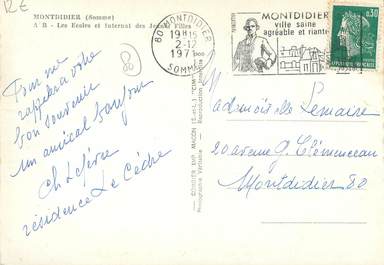 12€
MONTDIDIER (Somme)
A R - Les Ecoles et Internat des Jeunes Filles
80 MONTDIDIER
19H15
2-12
197
SOMME
PARMENTIER
MONTDIDIER
ville saine
agréable et riante
0,30
Pour me
rappeler à votre
bon souvenir
un amical bonjour
Ch Lefèvre
résidence Le Cèdre
COMBIER IMP. MACON (S.-&-L.) "CIM"
Photographie Véritable - Reproduction Interdite
Mademoiselle Lemaire
20 avenue G. Clémenceau
Montdidier 80